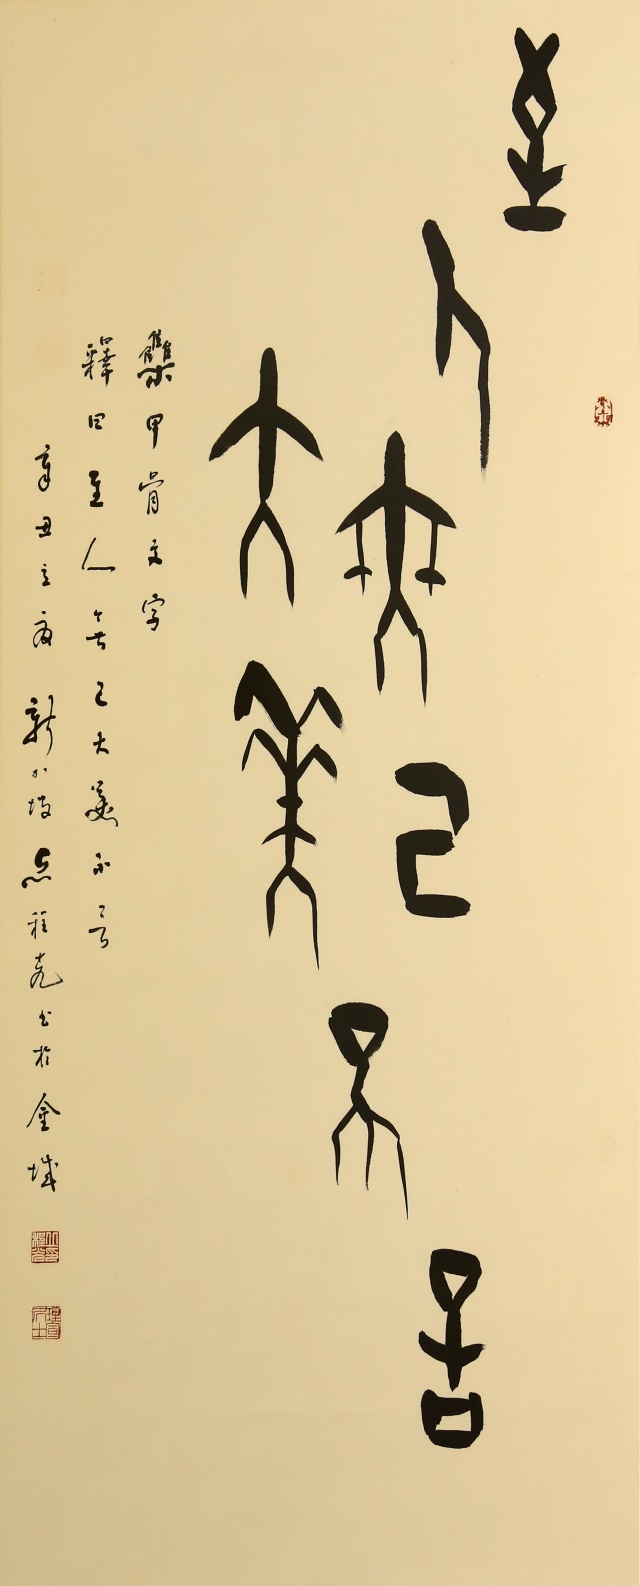 至人無己大美不言
集甲骨文字
釋曰至人無己大美不言
辛丑立夏新加坡丘程光书於金城